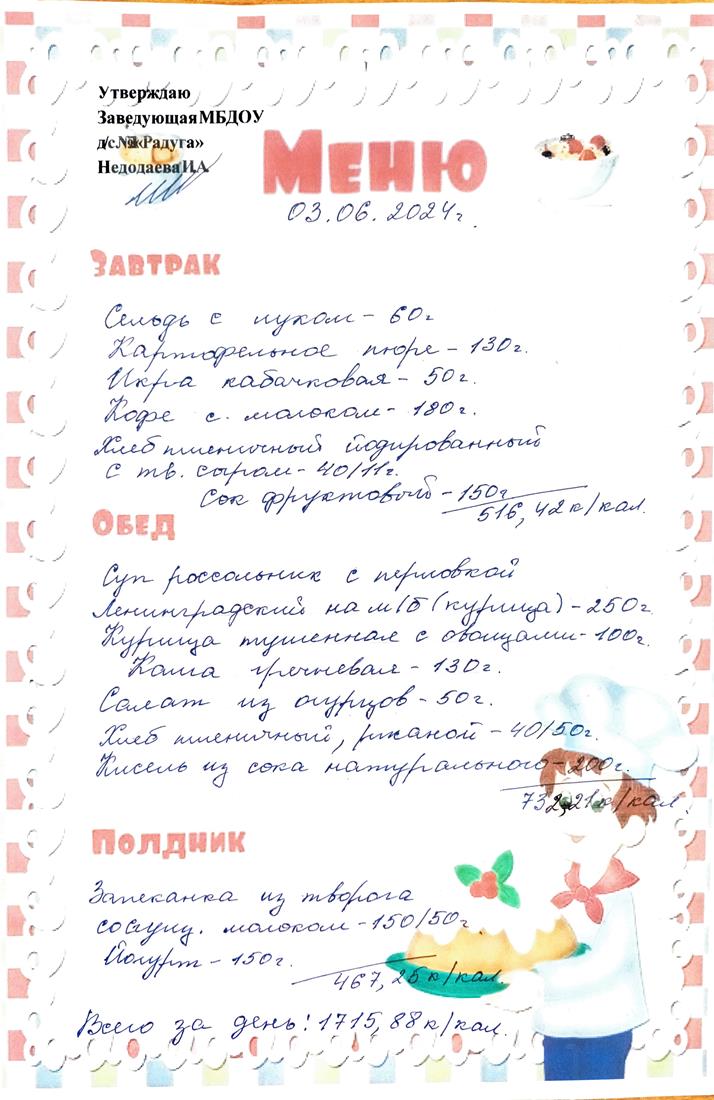 Утверждаю
Заведующая МБДОУ
«Радуга»
Недодаева И.А.
Меню
03.06.2024г.
Завтрак
Сельдь с луком - 60г
Картофельное пюре - 130г.
Икра кабачковая - 50г.
Кофе с. молоком - 180г.
Хлеб пшеничный йодированный
с тв. сыром - 40/11г.
Сок фруктовый - 150г
516,42 к/кал.
Обед
Суп россольник с перловкой
Ленинградский на м/б (курица) - 250г.
Курица тушенная с овощами - 100г.
Каша гречневая - 130г.
Салат из огурцов - 50г.
Хлеб пшеничный, ржаной - 40/50г.
Кисель из сока натурального - 200г.
732,21 к/кал.
Полдник
Запеканка из творога
со сгущ. молоком - 150/50г
Йогурт - 150г.
467,25 к/кал.
Всего за день: 1715,88 к/кал.